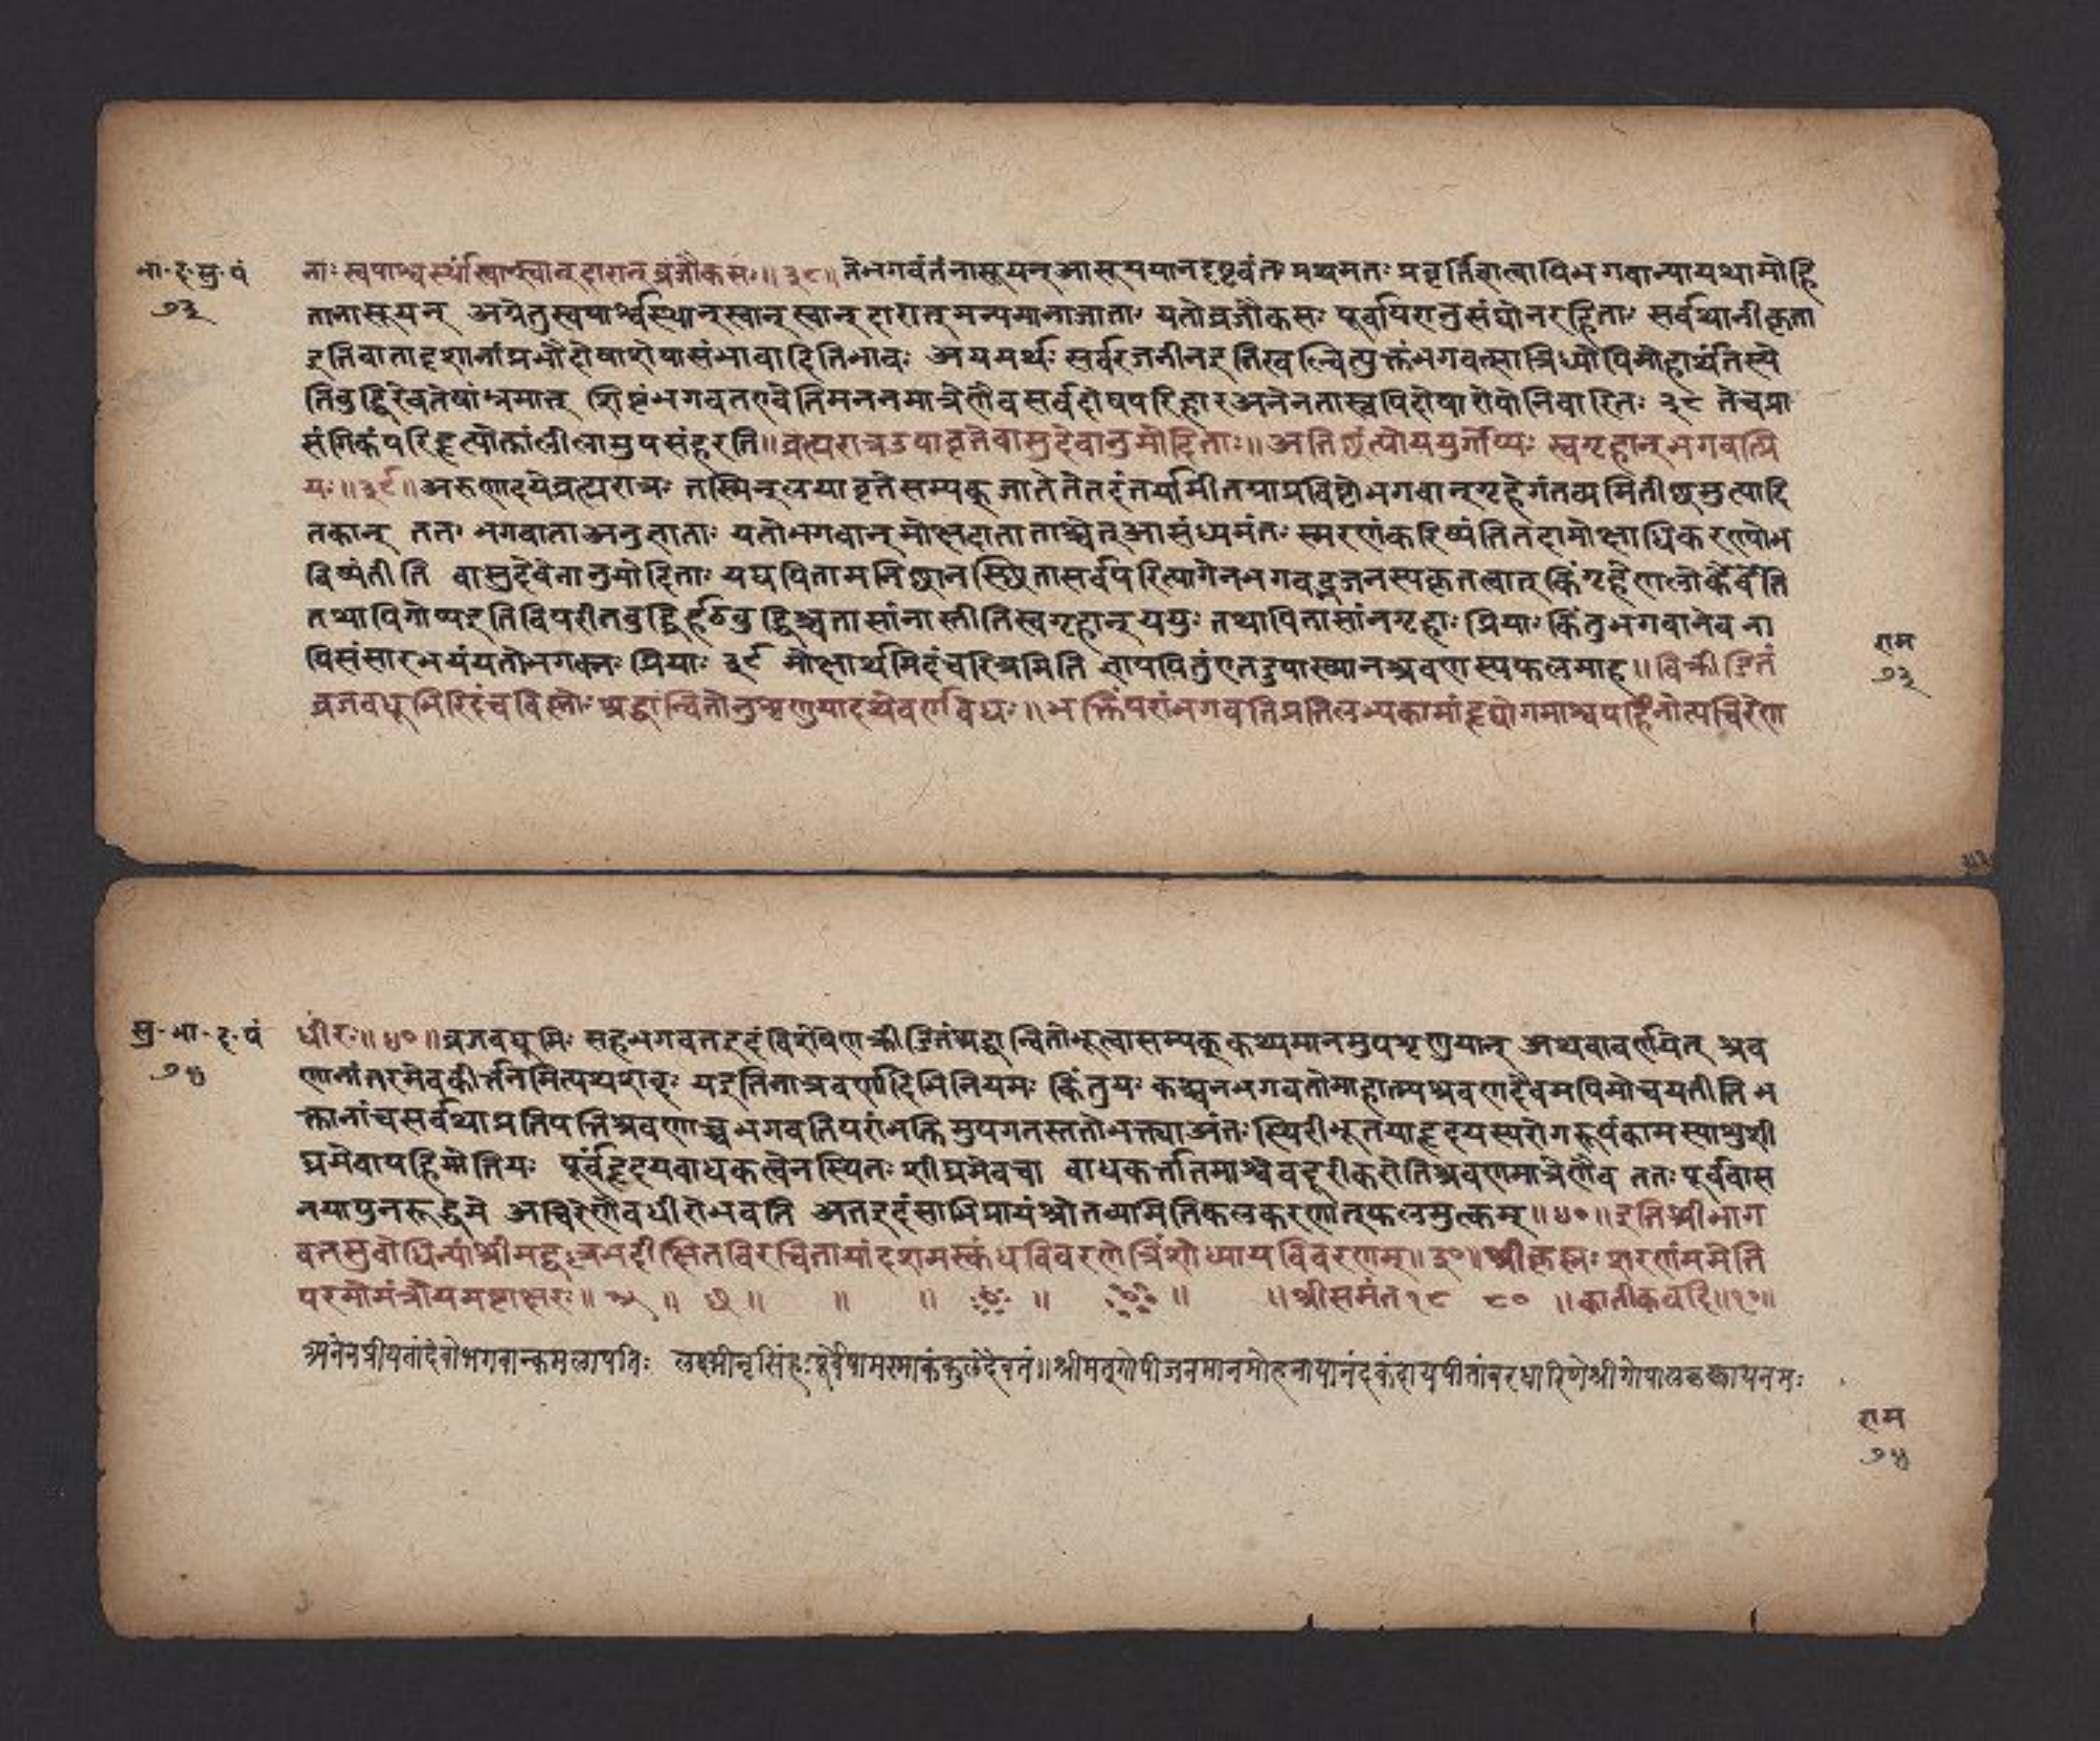 भा॰द॰सु॰पं
७३
नाः स्वपार्श्वस्थांस्वान्स्वान्दारान्व्रजौकसः॥३८॥तेभगवंतंनासूयन्आसूययानदृष्टवंतः प्रथमतः प्रवृत्तिर्ज्ञात्वापिभगवान्मायया मोहि
तानासूयन् अग्रेतुस्वपार्श्वस्थान्स्वान्स्वान्दारान्मन्यमानाजाताः यतोव्रजौकसः पूर्वापरानुसंधानरहिताः सर्वथानीकृता
इतिवातादृशानांप्रभौदोषारोषासंभावादितिभावः अयमर्थः सर्वरजनीनइतिस्वल्चित्युक्तंभगवत्सान्निध्येपिमोहार्थंतिस्ये
तिबुद्धिरेवतेषांभ्रमात् शिष्टंभगवतएवेतिमननमात्रेणैवसर्वदोषपरिहारअनेनतास्वपिदोषारोपोनिवारितः ३८ तेचप्रा
संगिकंपरिहृत्योक्तांलीलामुपसंहरति॥व्रत्मरात्रउपावृत्तेवासुदेवानुमोदिताः॥अनिछंत्योययुर्गोप्यः स्वगृहान्भगवत्प्रि
यः॥३९॥अरुणोदयेव्रत्मरात्रः तस्मिन्उपावृत्तेसम्यक्जातेतेतदंतर्यामीतयाप्रविष्टोभगवान्गृहेगंतव्यमितीछामुत्पादि
तवान् ततः भगवाताअनुज्ञाताः यतोभगवान्मोक्षदाता ताश्चेत्आसंध्यमंतः स्मरणंकरिष्यंतितदामोक्षाधिकारण्योभ
विष्यंतीति वासुदेवेनानुमोदिताः यद्यपितामनिछानस्छितासर्वपरित्यागेनभगवद्भजनस्यकृतत्वात्किंगृहेणलोकैर्वेति
तथापिगोप्यइतिविपरीतबुद्धिर्हठबुद्धिश्चतासांनास्तीतिस्वगृहान्ययुः तथापितासांनगृहाः प्रियाः किंतुभगवानेव ना
पिसंसारभयंयतोभगवतः प्रियाः ३९ मोक्षार्थमिदंचरित्रमिति ज्ञापयितुंएतदुपाख्यानश्रवणस्यफलमाह॥विक्रीडितं
व्रजवधूभिरिदंचविष्णोः श्रद्धान्वितोनुशृणुयादथवर्णयेद्यः॥भक्तिंपरांभगवतिप्रतिलभ्यकामंहृद्रोगमाश्वपहिनोत्यचिरेण
राम
७३
सु॰भा॰द॰पं
७४
धीरः॥४०॥व्रजवधूभिः सहभगवतइदंविशेषेणक्रीडितंश्रद्धान्वितोभूत्वासम्यक्कथ्यमानमुपशृणुयात् अथवावर्णयेत् श्रव
णानंतरमेवकीर्त्तनमित्यथशब्दः यइतिनात्रवर्णादिभिनियमः किंतुयः कश्चनभगवतोमाहात्म्यश्रवणदैवमपिमोचयतीति भ
क्तानांचसर्वथाप्रतिपत्तिश्रवणाच्चभगवतिपरांभक्तिमुपगतस्ततोभक्त्याअंतः स्थिरीभूतयाहृदयस्यरोगरूपंकामस्याशुशी
घ्रमेवापहिनोतियः पूर्वंहृदयबाधकत्वेनस्थितः शीघ्रमेवचा बाधकर्त्तातमाश्वेवदूरीकरोतिश्रवणमात्रेणैव ततः पूर्ववास
नयापुनरुद्गमे अचिरेणैवधीरोभवति अतइदंसाभिप्रायंश्रोतव्यमितिफलकरणात्फलमुक्तम्॥४०॥इतिश्रीभाग
वतसुबोधिन्यांश्रीमद्वल्लभदीक्षितविरचितायांदशमस्कंधविवरणेत्रिंशोध्यायविवरणम्॥३०॥श्रीकृष्णः शरणंममेति
परमोमंत्रोयमष्टाक्षरः॥ ॥ छ॥ ॥ ॥ ॥ ॥ ॥श्रीसमंत १८ ८० ॥कार्तीकवदि॥१०॥
अनेनप्रीयतांदेवोभगवान्कमलापतिः लक्ष्मीनृसिंहः पूर्वेषामस्माकंकुलदैवतं॥श्रीमत्गोपीजनमानमोहनायानंदकंदायपीतांबरधारिणेश्रीगोपालकृष्णायनमः
राम
७४